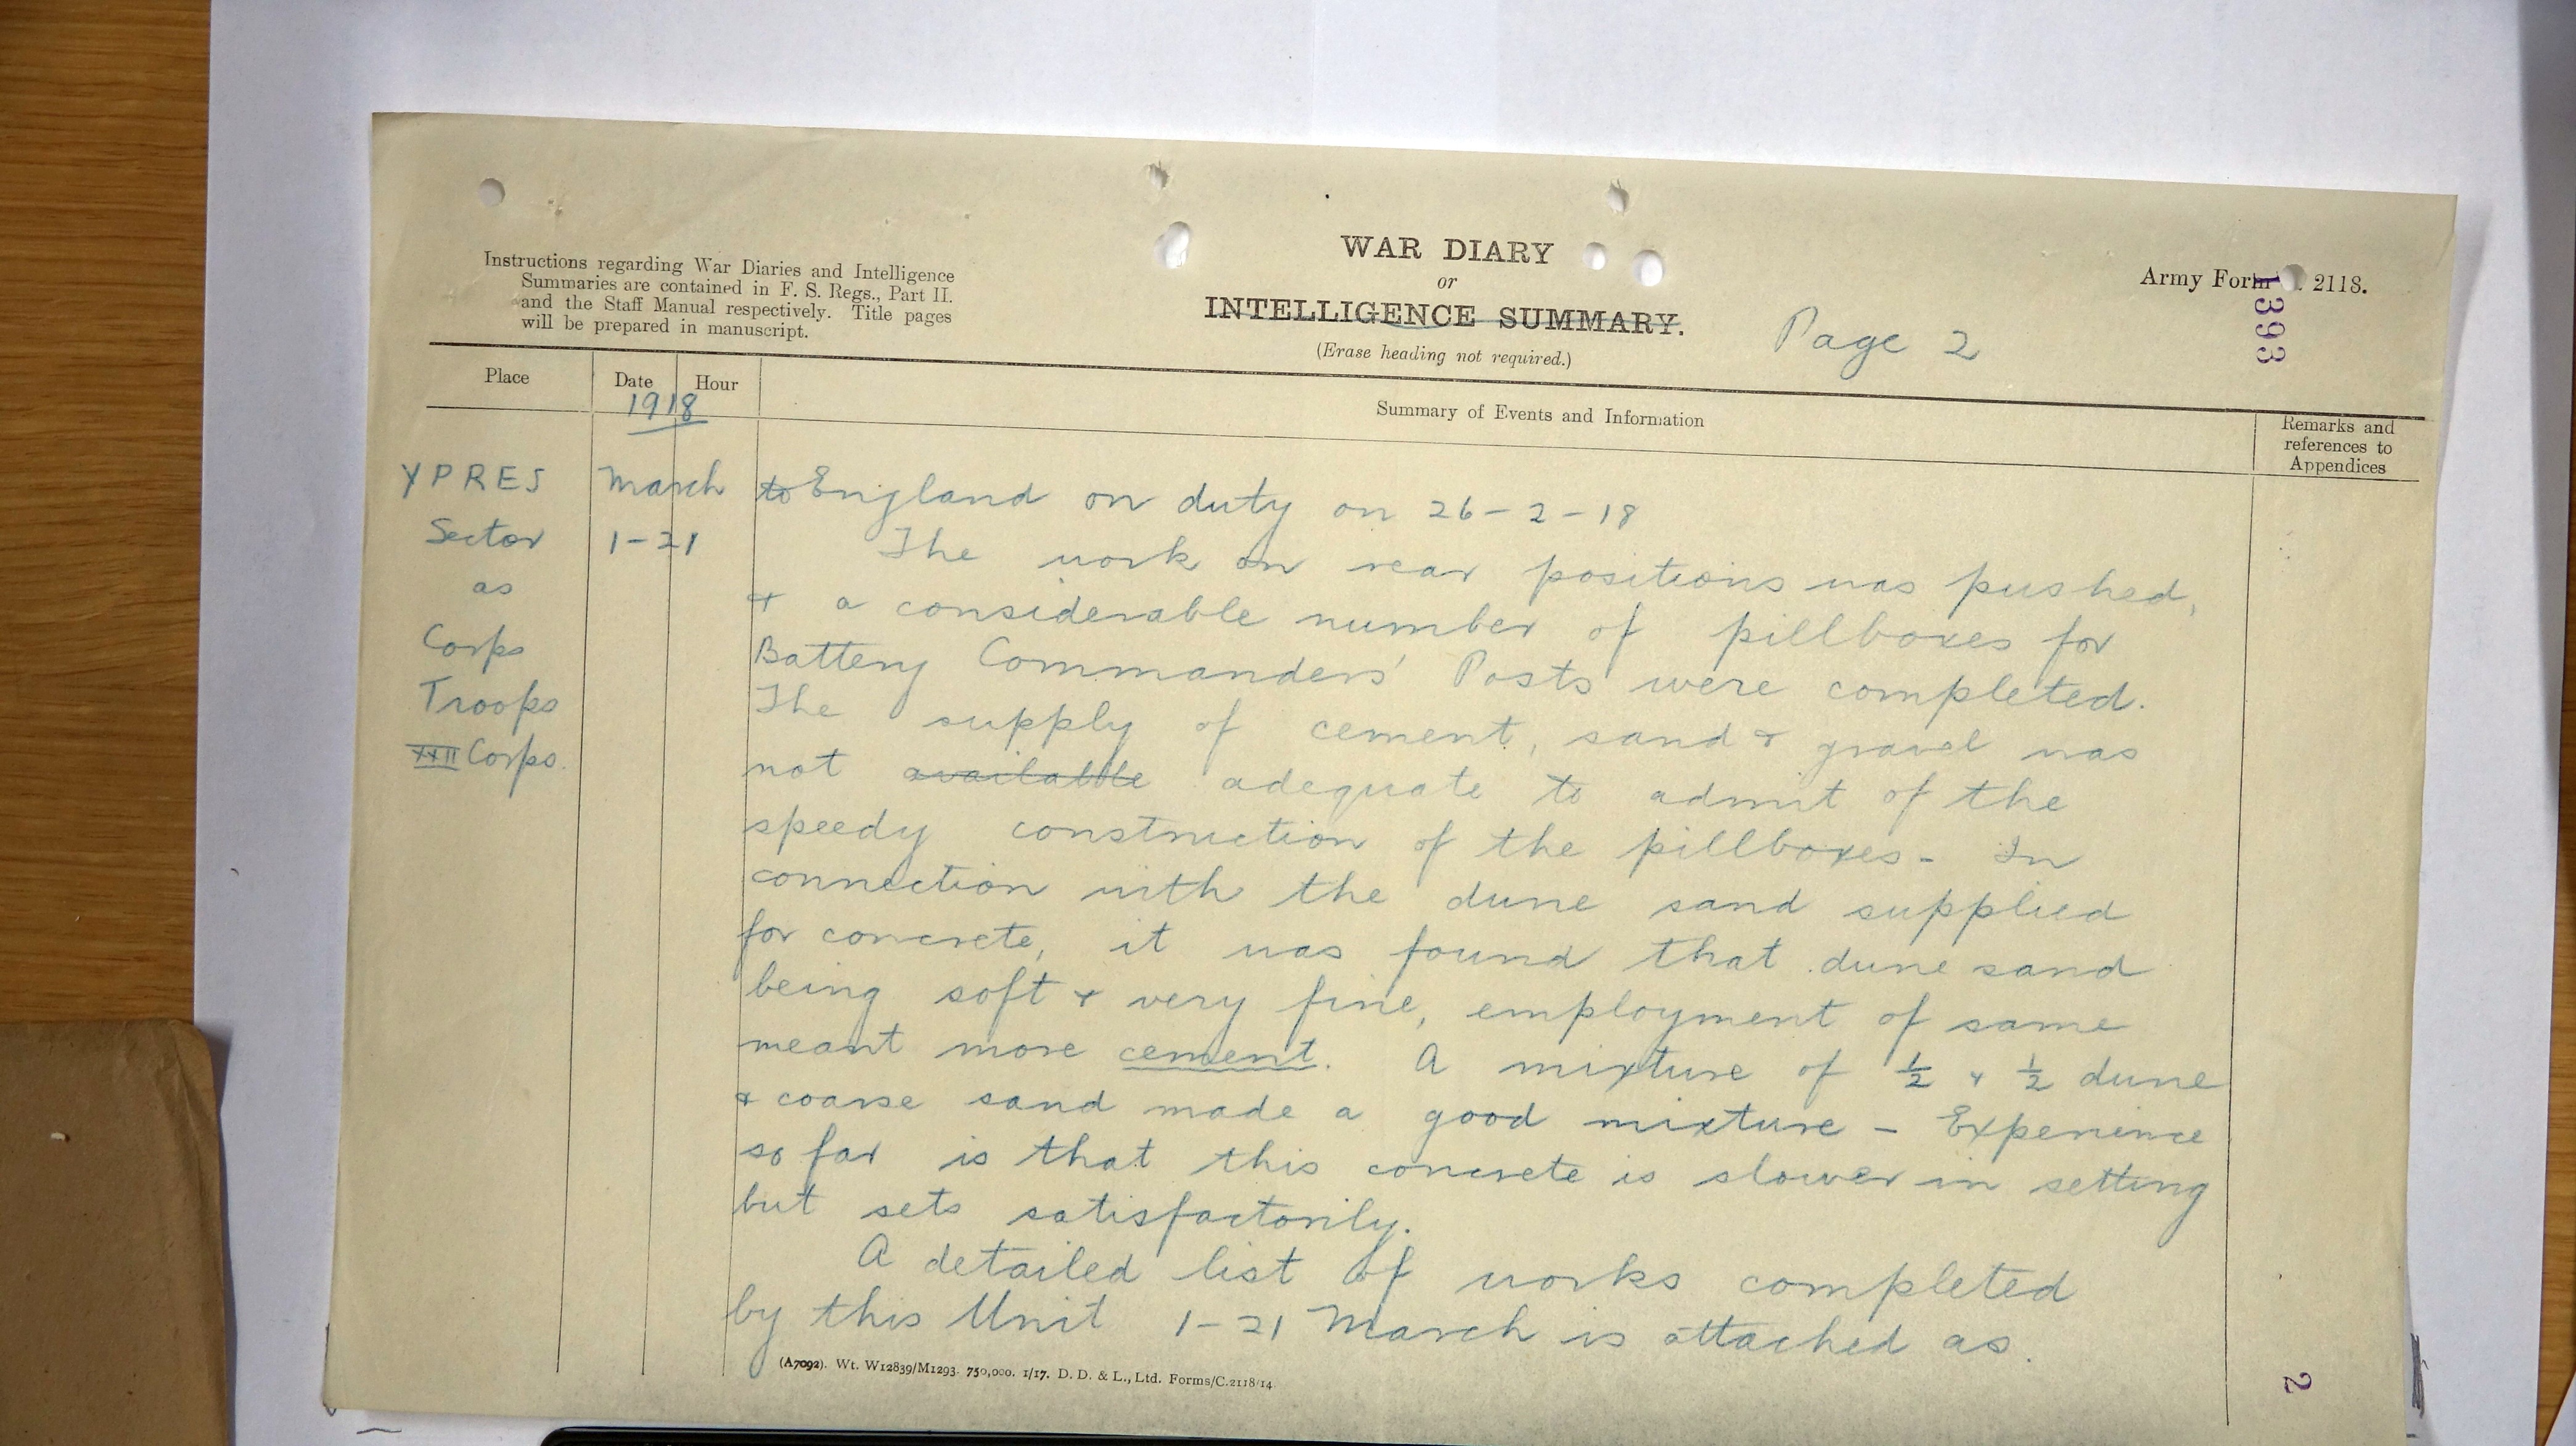 Instructions regarding War Diaries and Intelligence
Summaries are contained in F. S. Regs., Part II.
and the Staff Manual respectively. Title pages
will be prepared in manuscript.
WAR DIARY
or
INTELLIGENCE SUMMARY.
(Erase heading not required.)
Page 2
Army Form . 2118.
1393
Place
Date
Hour
1918
Summary of Events and Information
Remarks and
references to
Appendices
YPRES
Sector
as
Corps
Troops
XXII Corps.
March
1-21
to England on duty on 26-2-18
The work on rear positions was pushed,
& a considerable number of pillboxes for
Battery Commanders' Posts were completed.
The supply of cement, sand & gravel was
not available adequate to admit of the
speedy construction of the pillboxes - In
connection with the dune sand supplied
for concrete, it was found that dune sand
being soft & very fine, employment of same
meant more cement. A mixture of ½ & ½ dune
& coarse sand made a good mixture - Experience
so far is that this concrete is slower in setting
but sets satisfactorily.
A detailed list of works completed
by this Unit 1-21 March is attached as.
(A7092). Wt. W12839/M1293. 750,000. 1/17. D. D. & L., Ltd. Forms/C.2118/14
2